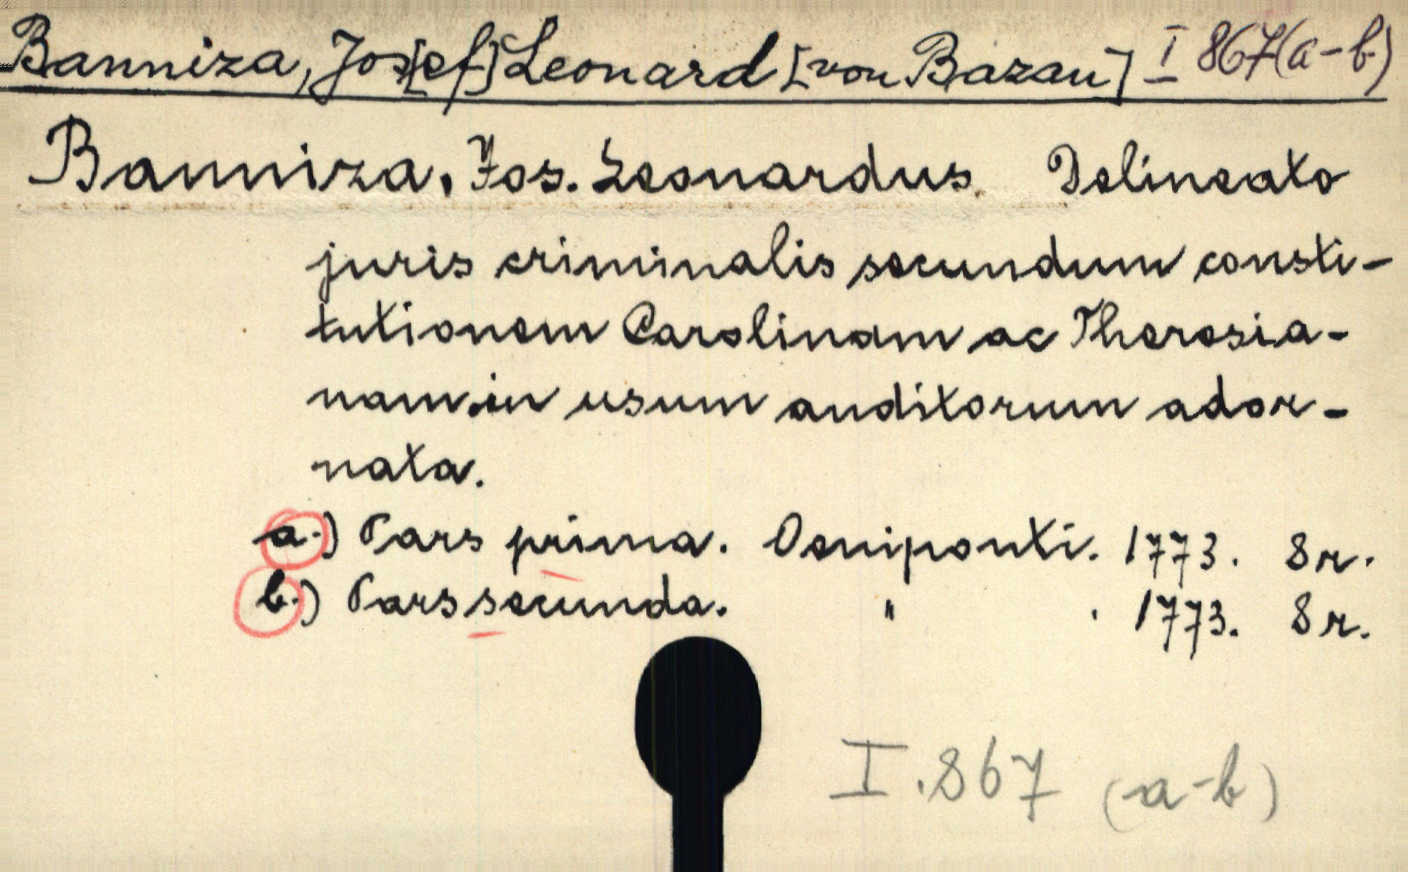 Banniza, Jos[ef] Leonard [von Bazan] I 867(a-b)
Banniza, Jos. Leonardus. Delineato
juris criminalis secundum consti-
tutionem Carolinam ac Theresia-
nam in usum auditorum ador-
nata.
a.) Pars prima. Oeniponti. 1773. 8r.
b.) Pars secunda. " . 1773. 8r.
I.867 (a-b)